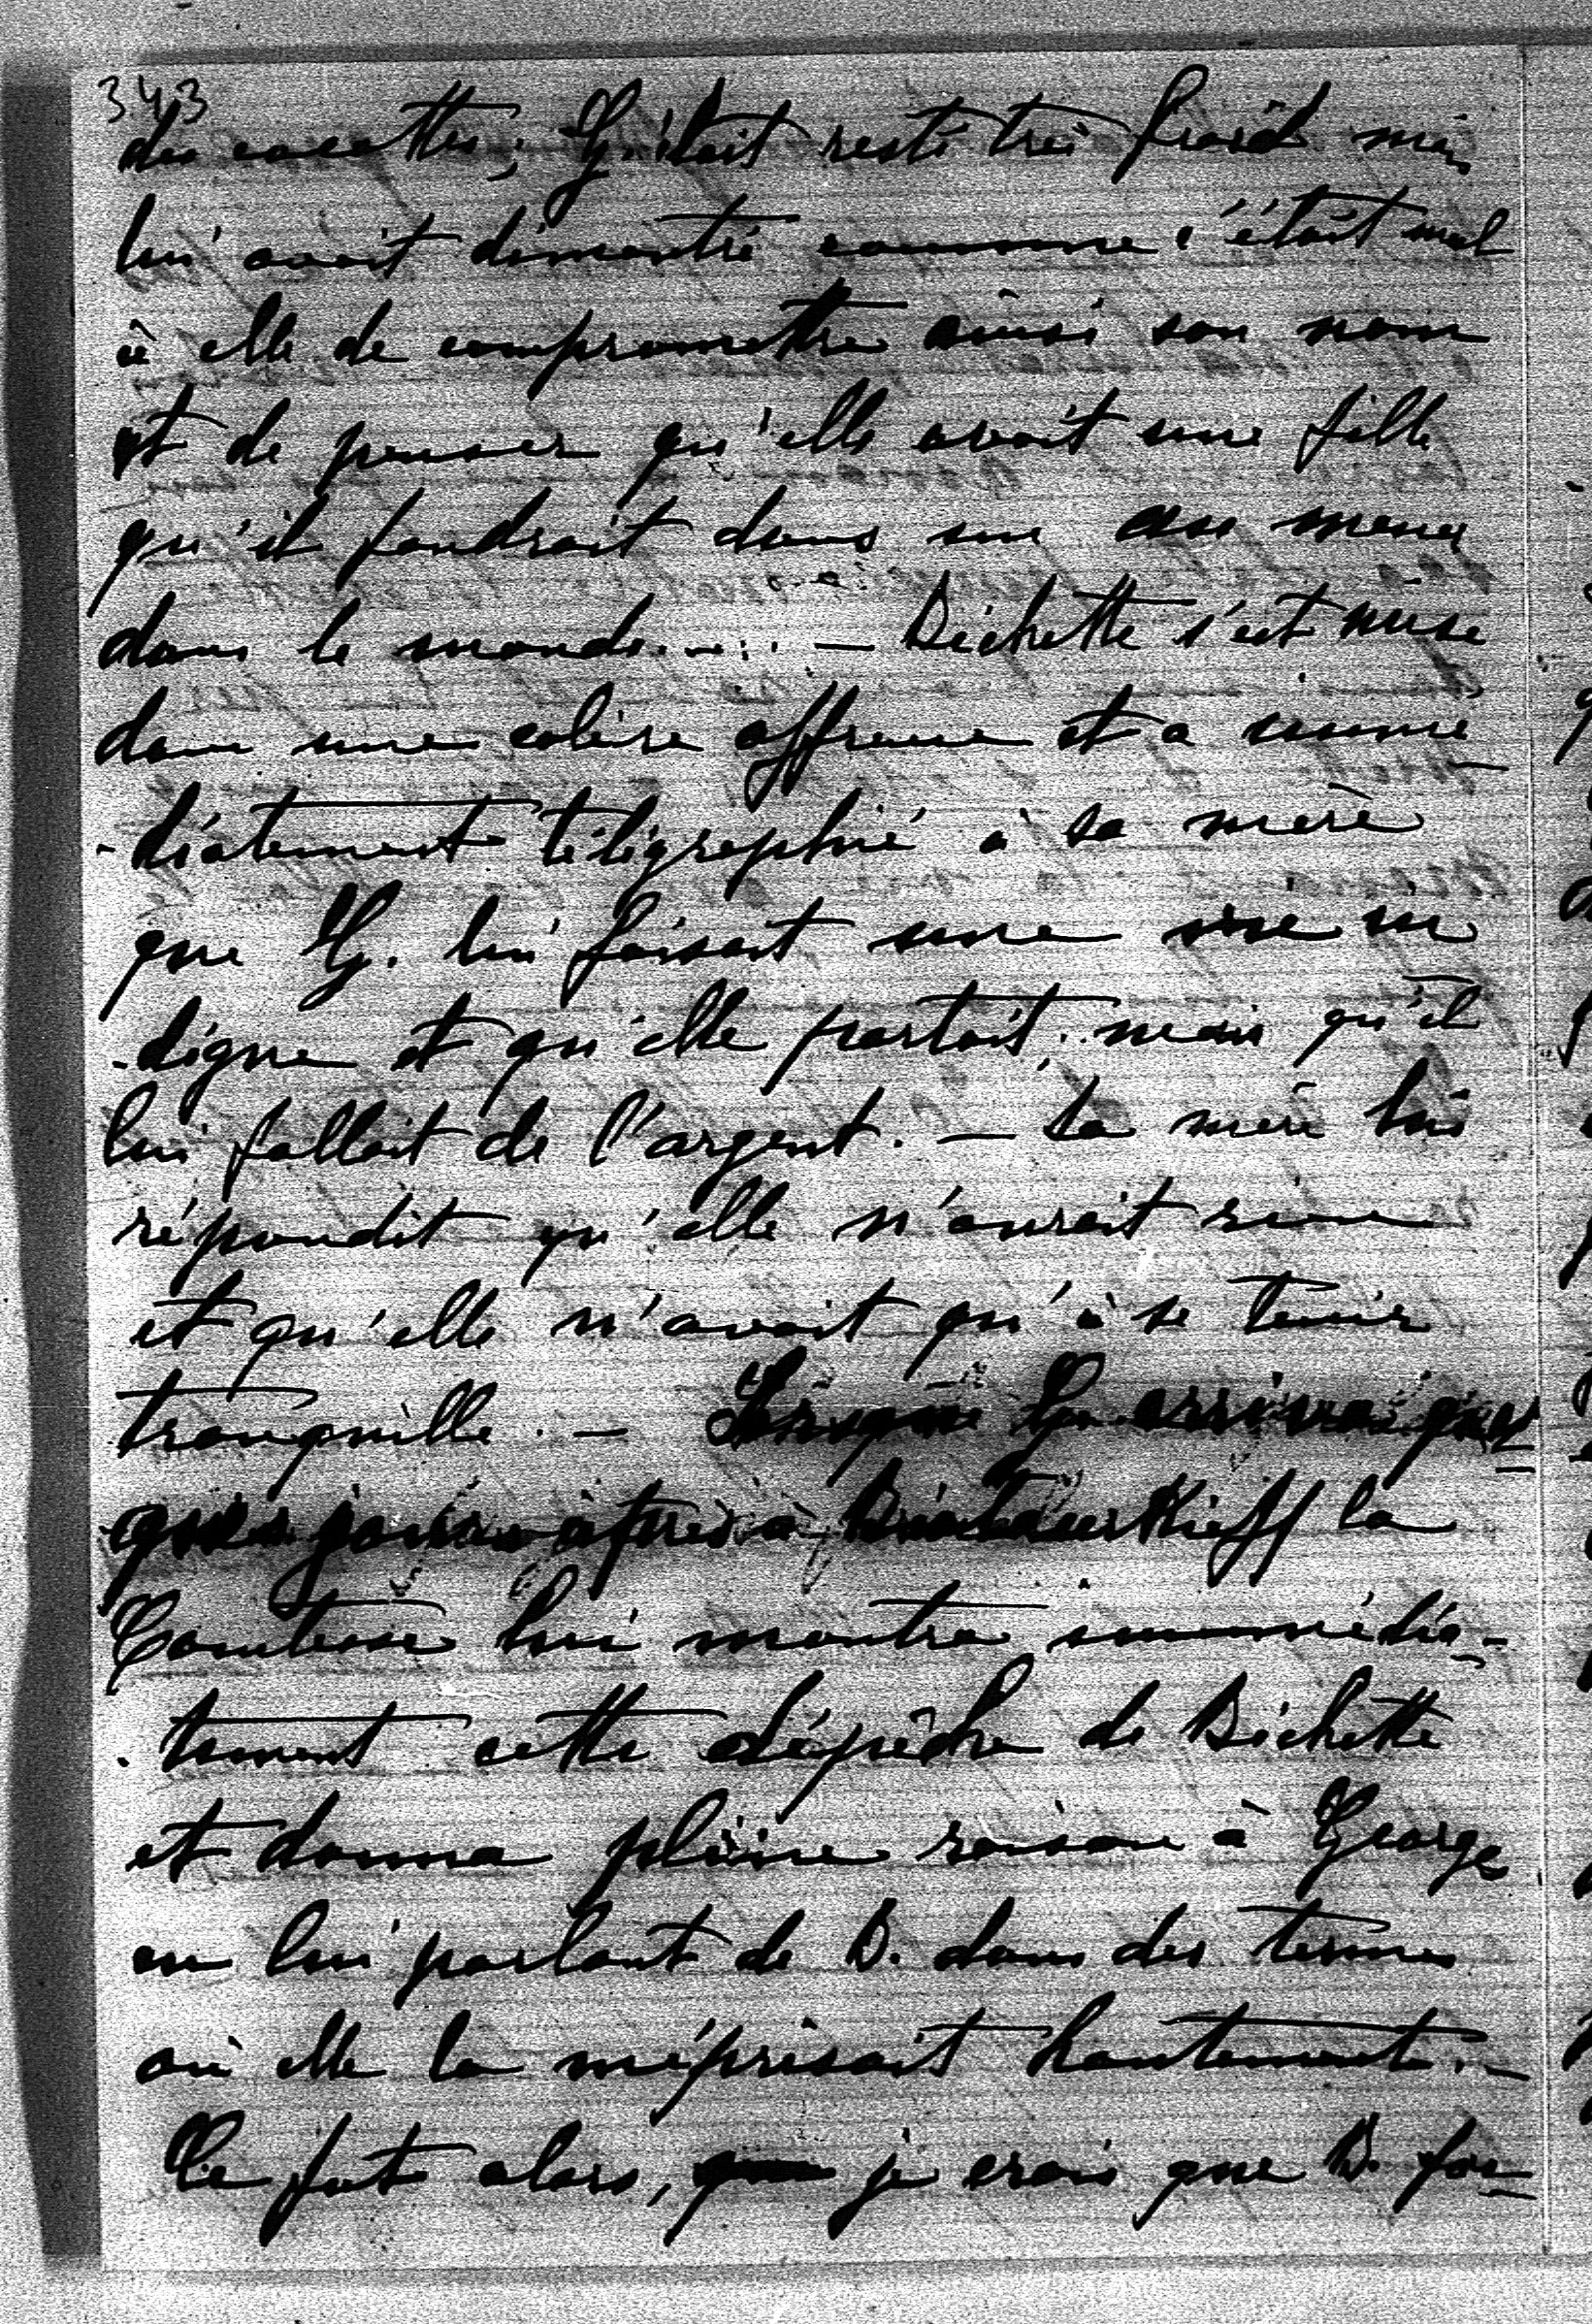 343
des cocottes; G. était resté très froid mais
lui avait démontré comme c'était mal
à elle de compromettre ainsi son nom
et de penser qu'elle avait une fille
qu'il faudrait dans un an mener
dans le monde..... — Bichette s'est mise
dans une colère affreuse et a immé-
-diatement télégraphié à sa mère
que G. lui faisait une vie in
-digne et qu'elle partait; mais qu'il
lui fallait de l'argent. — Sa mère lui
répondit qu'elle n'aurait rien
et qu'elle n'avait qu'à se tenir
tranquille. — Lorsque G. arriva quel-
ques jours après à Kieff la
Comtesse lui montra immédia-
-tement cette dépêche de Bichette
et donna pleine raison à George
en lui parlant de B. dans des termes
où elle la méprisait hautement. —
Ce fut alors, je crois que B. for-